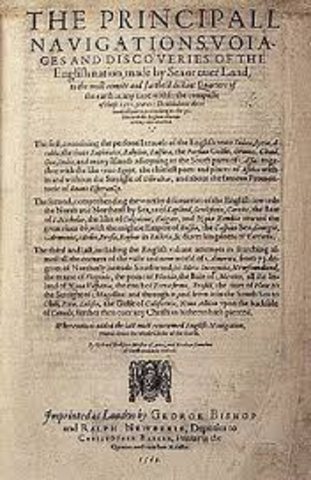 THE PRINCIPALL
NAVIGATIONS, VOIA-
GES AND DISCOVERIES OF THE
English nation, made by Sea or ouer Land,
to the most remote and farthest distant Quarters of
the earth at any time within the compasse
of these 1500. yeeres: Deuided into three
The first, containing the personall trauels of the English vnto Iudæa, Syria, A-
rabia, the riuer Euphrates, Babylon, Balsara, the Persian Gulfe, Ormuz, Chaul,
Goa, India, and many Islands adioyning to the South parts of Asia: together
with the like vnto Egypt, the chiefest ports and places of Africa with-
in and without the Streight of Gibraltar, and about the famous Promon-
torie of Buona Esperança.
The second, comprehending the worthy discoueries of the English towards
the North and Northeast by Sea, as of Lapland,
with the mightie Empire of Russia, the Caspian Sea, Georgia,
Armenia, Media, Persia, Boghar in Bactria,
The third and last, including the English valiant attempts in searching al-
most all the corners of the vaste and new world of America, from 73. de-
grees of Northerly latitude Southward, to Meta Incognita, Newfoundland,
the maine of Virginia, the point of Florida, the Baie of Mexico, all the In-
land of Noua Hispania, the coast of Terra firma, Brasill, the riuer of Plate, to
the Streight of Magellan: and through it, and from it in the South Sea to
Chili, Peru, Xalisco, the Gulfe of California, Noua Albion vpon the backside
of Canada, further then euer any Christian hitherto hath pierced.
Whereunto is added the last most renowmed English Nauigation,
round about the whole Globe of the Earth.
By Richard Hakluyt Master of Artes, and Student sometime
Imprinted at London by GEORGE BISHOP
and RALPH NEWBERIE, Deputies to
CHRISTOPHER BARKER, Printer to the
Queenes most excellent Maiestie.
1589.